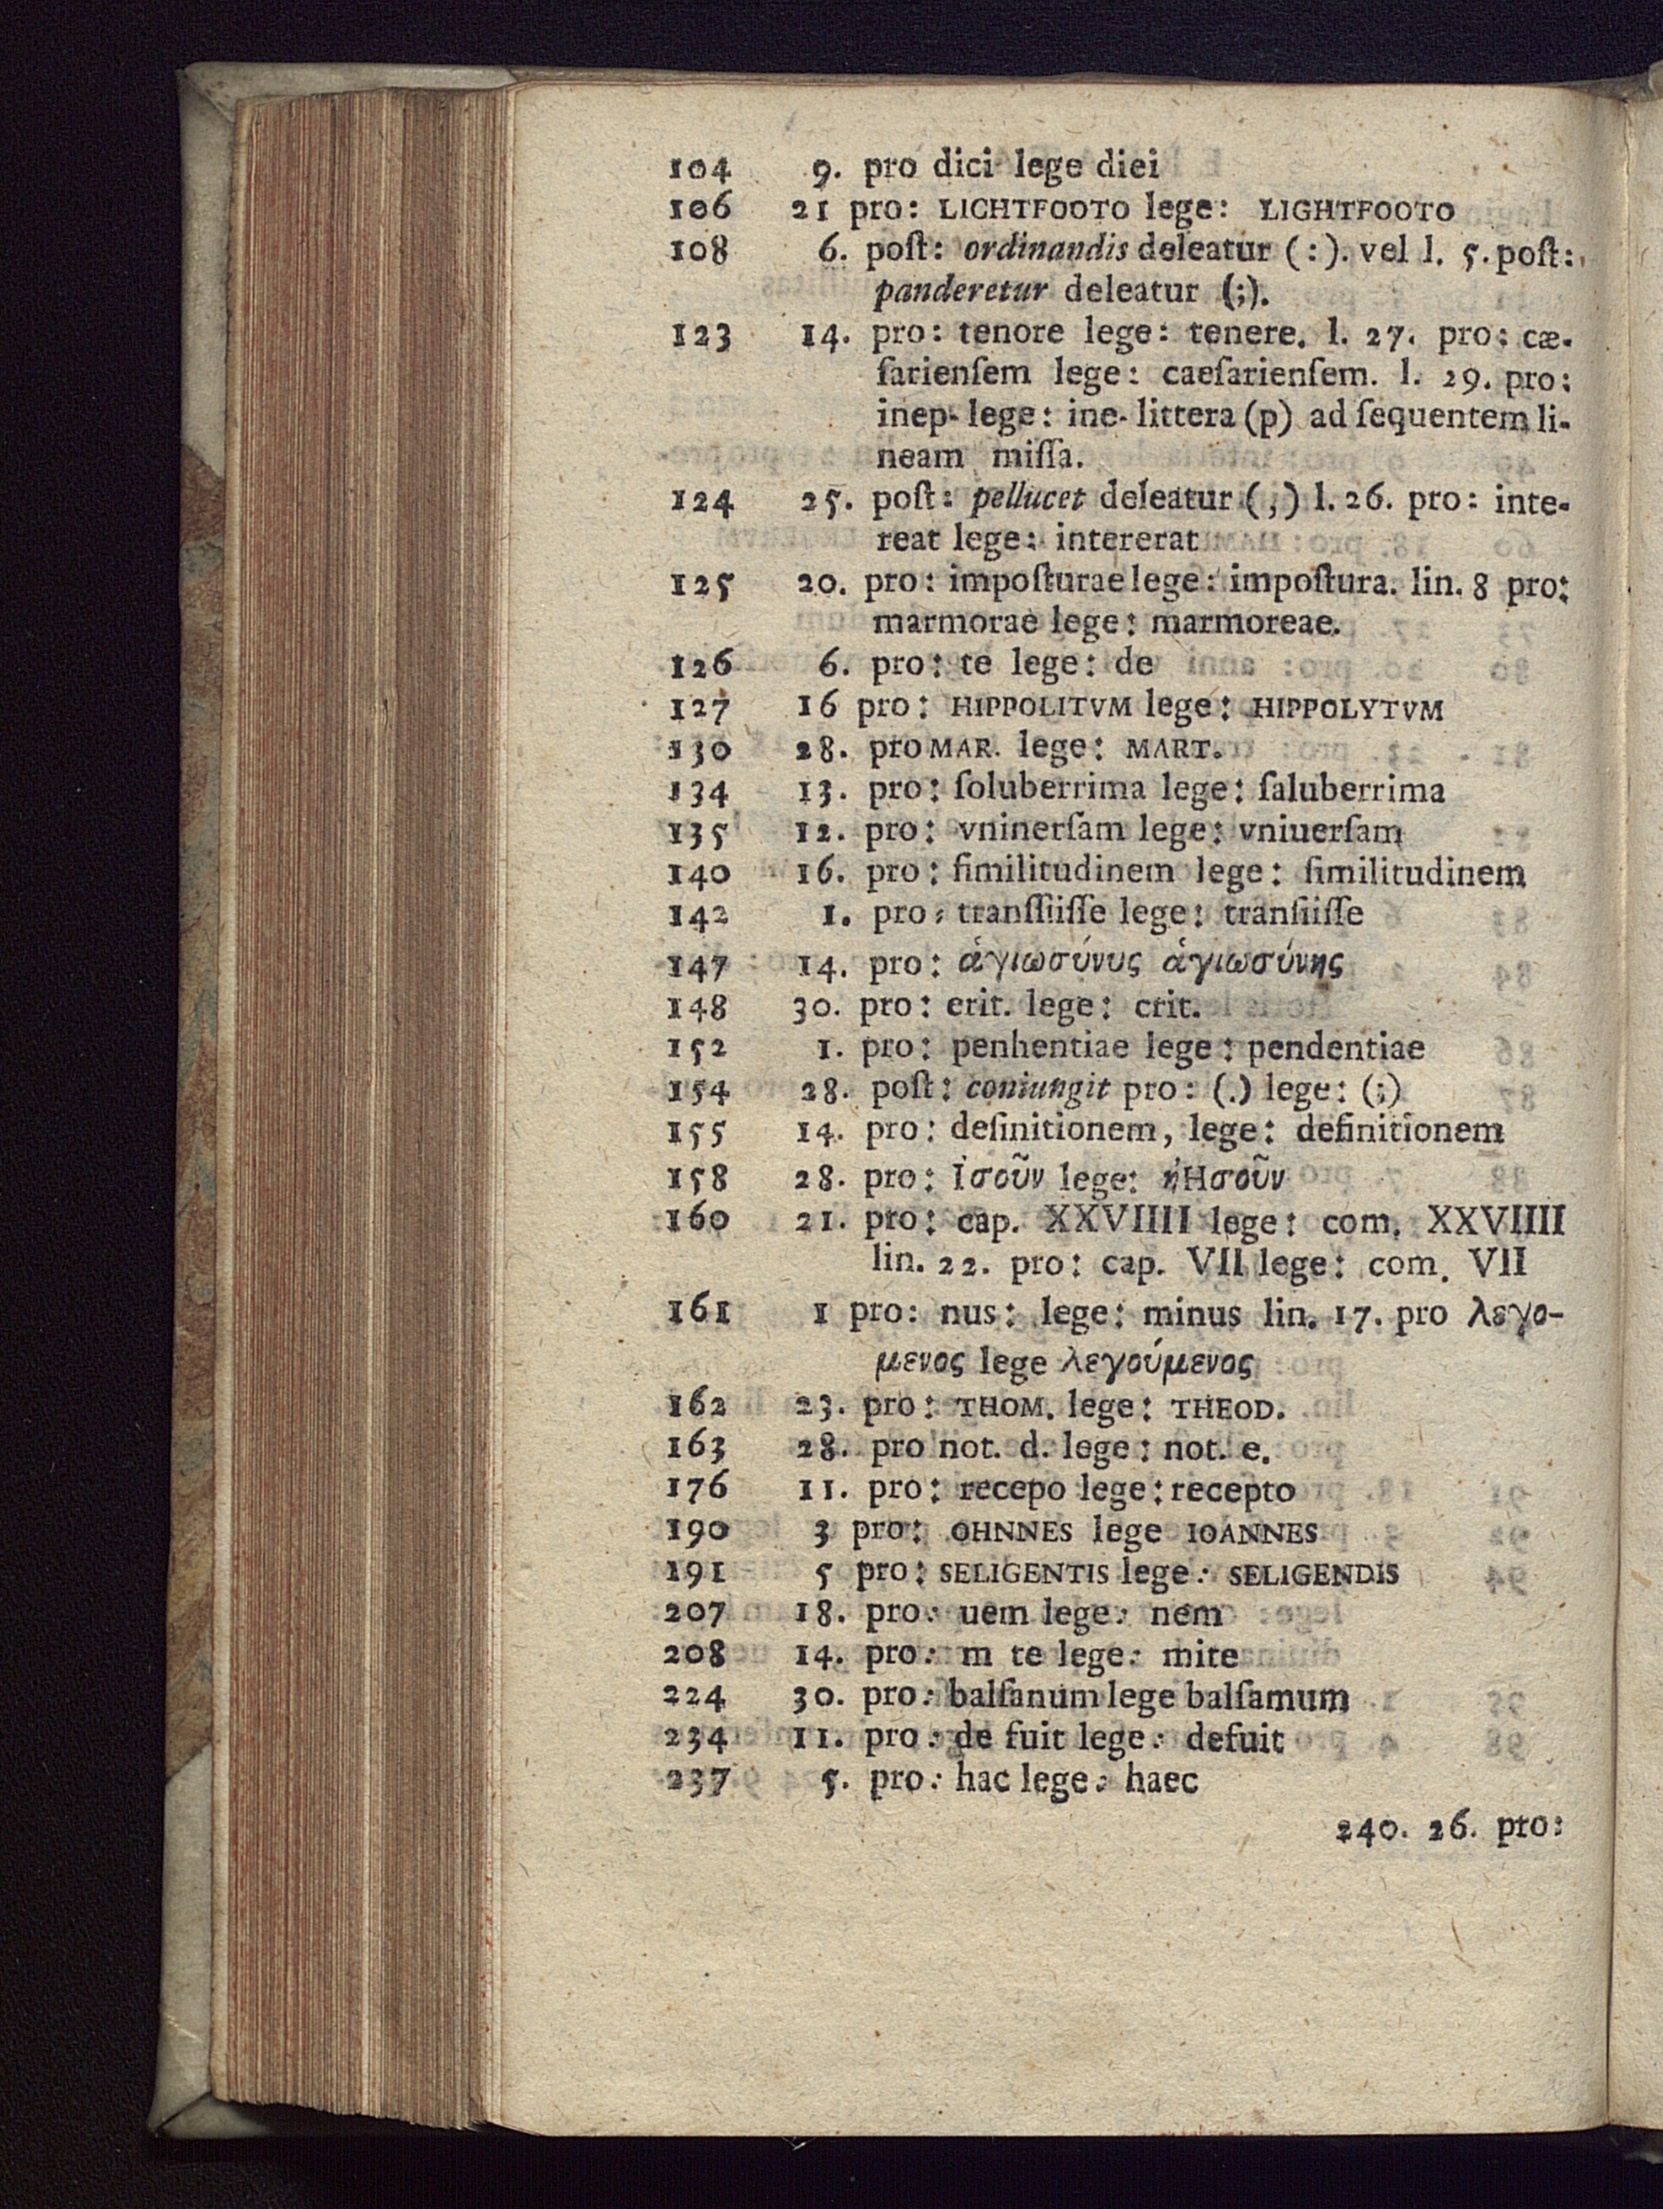 104 9. pro dici lege diei
106 21 pro: LICHTFOOTO lege: LIGHTFOOTO
108 6. poſt: ordinandis deleatur (:). vel l. 5. poſt:
panderetur deleatur (;).
123 14. pro: tenore lege: tenere. l. 27. pro: cæ-
ſarienſem lege: caeſarienſem. l. 29. pro:
inep- lege: ine- littera (p) ad ſequentem li-
neam miſſa.
124 25. poſt: pellucet deleatur (,) l. 26. pro: inte-
reat lege: intererat
125 20. pro: impoſturae lege: impoſtura. lin. 8 pro:
marmorae lege: marmoreae.
126 6. pro: te lege: de
127 16 pro: HIPPOLITVM lege: HIPPOLYTVM
130 28. pro MAR. lege: MART.
134 13. pro: ſoluberrima lege: ſaluberrima
135 12. pro: vninerſam lege: vniuerſam
140 16. pro: fimilitudinem lege: ſimilitudinem
142 1. pro: tranſſiiſſe lege: tranſiiſſe
147 14. pro: ἁγιωσύνυς ἁγιωσύνης
148 30. pro: erit. lege: crit.
152 1. pro: penhentiae lege: pendentiae
154 28. poſt: coniungit pro: (.) lege: (;)
155 14. pro: deſinitionem, lege: definitionem
158 28. pro: ἰσοῦν lege: ἠHσοῦν
160 21. pro: cap. XXVIIII lege: com. XXVIIII
lin. 22. pro: cap. VII lege: com. VII
161 1 pro: nus: lege: minus lin. 17. pro λεγο-
μενος lege λεγούμενος
162 23. pro: THOM. lege: THEOD.
163 28. pro not. d. lege: not. e.
176 11. pro: recepo lege: recepto
190 3 pro: OHNNES lege IOANNES
191 5 pro: SELIGENTIS lege: SELIGENDIS
207 18. pro: uem lege: nem
208 14. pro: m te lege: mite
224 30. pro: balſanum lege balſamum
234 11. pro: de fuit lege: defuit
237 5. pro: hac lege: haec
240. 26. pro: